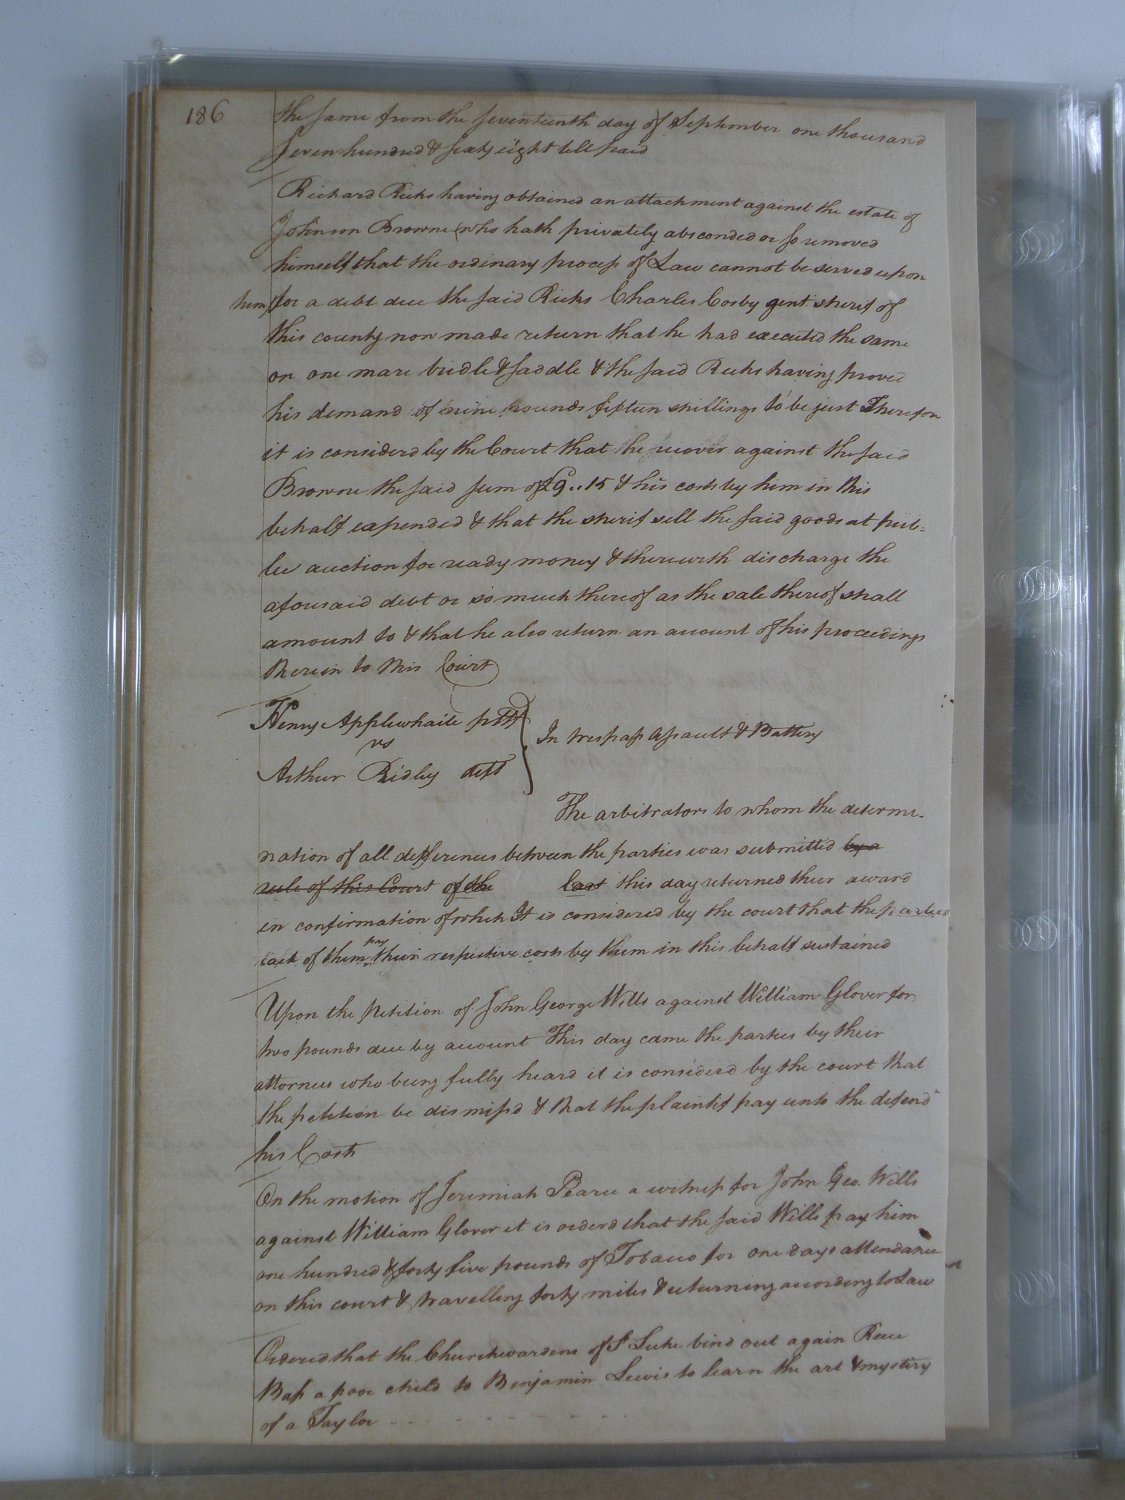 186
the same from the seventeenth day of September one thousand
seven hundred & sixty eight till paid
Richard Ricks having obtained an attachment against the estate of
Johnson Browne (who hath privately absconded or so removed
himself that the ordinary process of Law cannot be served upon
him) for a debt due the said Ricks Charles Cosby gent. sherif of
this county now made return that he had executed the same
on one mare bridle & saddle & the said Ricks having proved
his demand of nine pounds fifteen shillings to be just Therefore
it is considerd by the Court that he recover against the said
Browne the said sum of £9..15 & his costs by him in this
behalf expended & that the sherif sell the said goods at pub-
lic auction for ready money & therewith discharge the
aforesaid debt or so much thereof as the sale thereof shall
amount to & that he also return an account of his proceedings
therein to this Court
Henry Applewhaite plt
vs
Arthur Ridley deft
In trespass Assault & Battery
The arbitrators to whom the determi-
nation of all differences between the parties was submitted by a
rule of this Court of the last this day returned their award
in confirmation of which It is considered by the court that the parties
each of them pay their respective costs by them in this behalf sustained
Upon the petition of John George Wills against William Glover for
two pounds due by account This day came the parties by their
attornies who being fully heard it is considerd by the court that
the petition be dismissd & that the plaintif pay unto the defend
his Costs
On the motion of Jeremiah Pearce a witness for John Geo. Wills
against William Glover it is orderd that the said Wills pay him
one hundred & forty five pounds of Tobacco for one days attendance
on this court & travelling forty miles & returning according to Law
Ordered that the Churchwardens of St Luke bind out again Reece
Bass a poor child to Benjamin Lewis to learn the art & mystery
of a Taylor